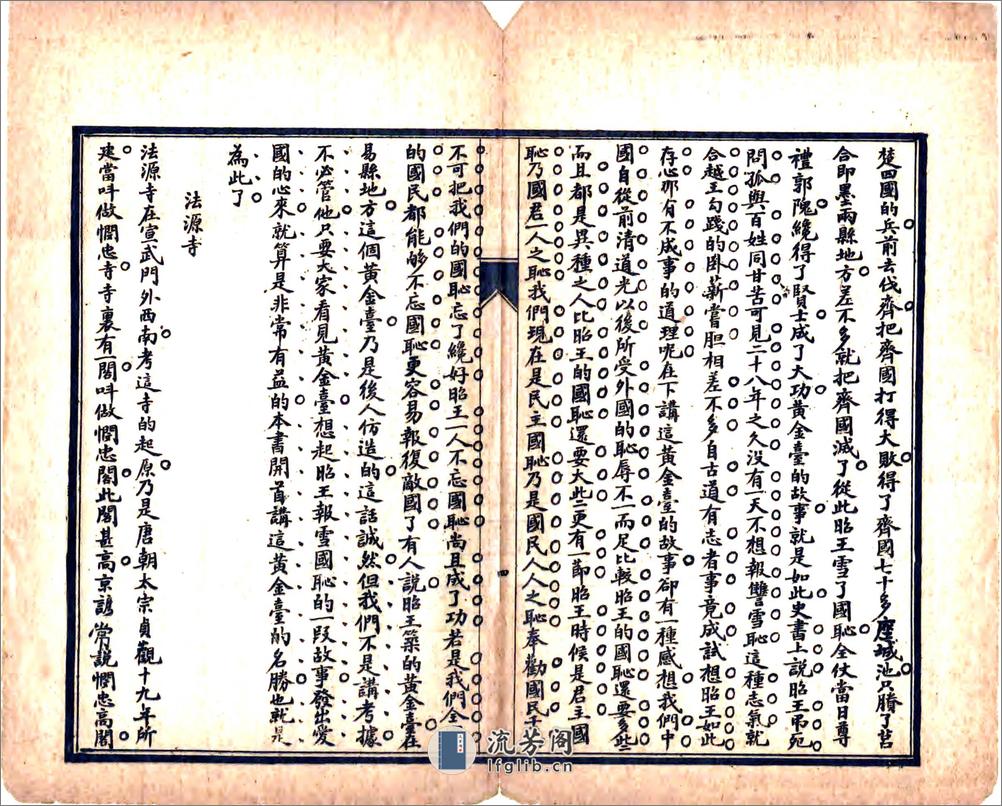 楚四國的兵前去伐齊把齊國打得大敗得了齊國七十多座城池只賸了莒
合即墨兩縣地方差不多就把齊國滅了從此昭王雪了國恥全仗當日尊
禮郭隗纔得了賢士成了大功黃金臺的故事就是如此史書上說昭王弔死
問孤與百姓同甘苦可見二十八年之久沒有一天不想報讐雪恥這種志氣就
合越王勾踐的卧薪嘗胆相差不多自古道有志者事竟成試想昭王如此
存心那有不成事的道理呢在下講這黃金臺的故事卻有一種感想我們中
國自從前清道光以後所受外國的恥辱不一而足比較昭王的國恥還要多些
而且都是異種之人比昭王的國恥還要大些更有一節昭王時候是君主國
恥乃國君一人之恥我們現在是民主國恥乃是國民人人之恥奉勸國民千
四
不可把我們的國恥忘了纔好昭王一人不忘國恥尚且成了功若是我們全
的國民都能够不忘國恥更容易報復敵國了有人說昭王築的黃金臺在
易縣地方這個黃金臺乃是後人仿造的這話誠然但我們不是講考據
不必管他只要大家看見黃金臺想起昭王報雪國恥的一段故事發出愛
國的心來就算是非常有益的本書開首講這黃金臺的名勝也就是
為此了
法源寺
法源寺在宣武門外西南考這寺的起原乃是唐朝太宗貞觀十九年所
建當時叫做憫忠寺寺裏有一閣叫做憫忠閣此閣甚高京諺常說憫忠高閣
流芳阁
lfglib.cn